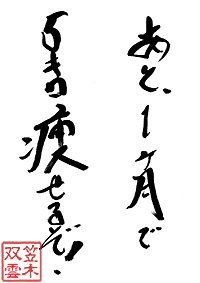 あと、1ヶ月で
5キロ痩せるぞ!
笠木
双雲